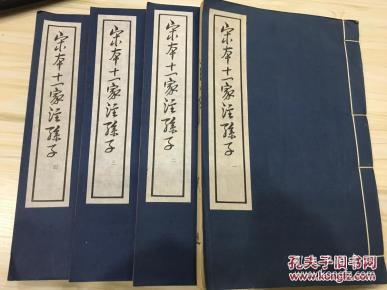 宋本十一家注孫子 一
宋本十一家注孫子 二
宋本十一家注孫子 三
宋本十一家注孫子 四
孔夫子旧书网